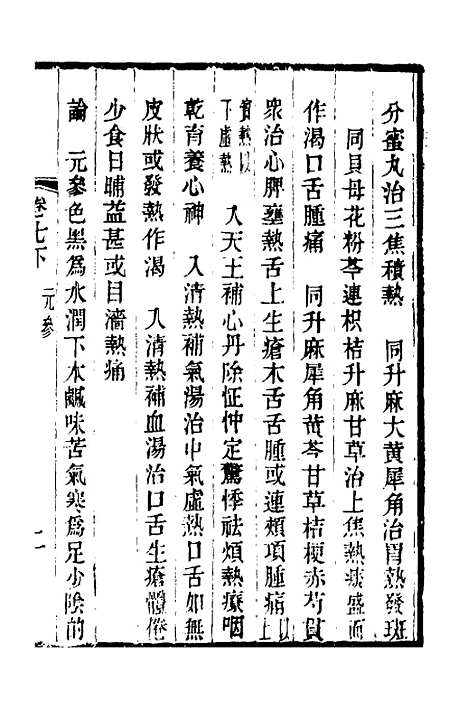 分蜜丸治三焦積熱　同升麻大黄犀角治胃熱發班
同貝母花粉芩連枳桔升麻甘草治上焦熱痰盛而
作渴口舌腫痛　同升麻犀角黄芩甘草桔梗赤芍貫
衆治心脾壅熱舌上生瘡木舌舌腫或連頰項腫痛以上
實熱以
下虛熱　入天王補心丹除怔忡定驚悸祛煩熱療咽
乾育養心神　入清熱補氣湯治中氣虛熱口舌如無
皮狀或發熱作渴　入清熱補血湯治口舌生瘡體倦
少食日晡益甚或目濇熱痛
論　元參色黑為水潤下水鹹味苦氣寒為足少陰的
卷七下　元參　二